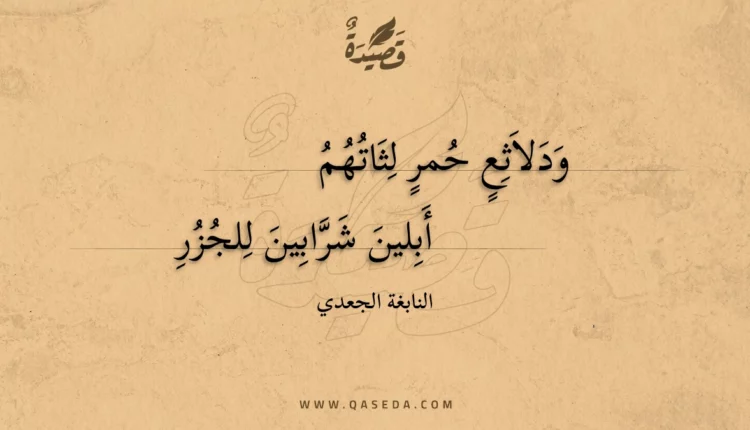 قَصِيدَةٌ
وَدَلاَثِعٍ حُمرٍ لِثَاتُهُمُ
أَبِلينَ شَرَّابِينَ لِلجُزُرِ
النابغة الجعدي
WWW.QASEDA.COM